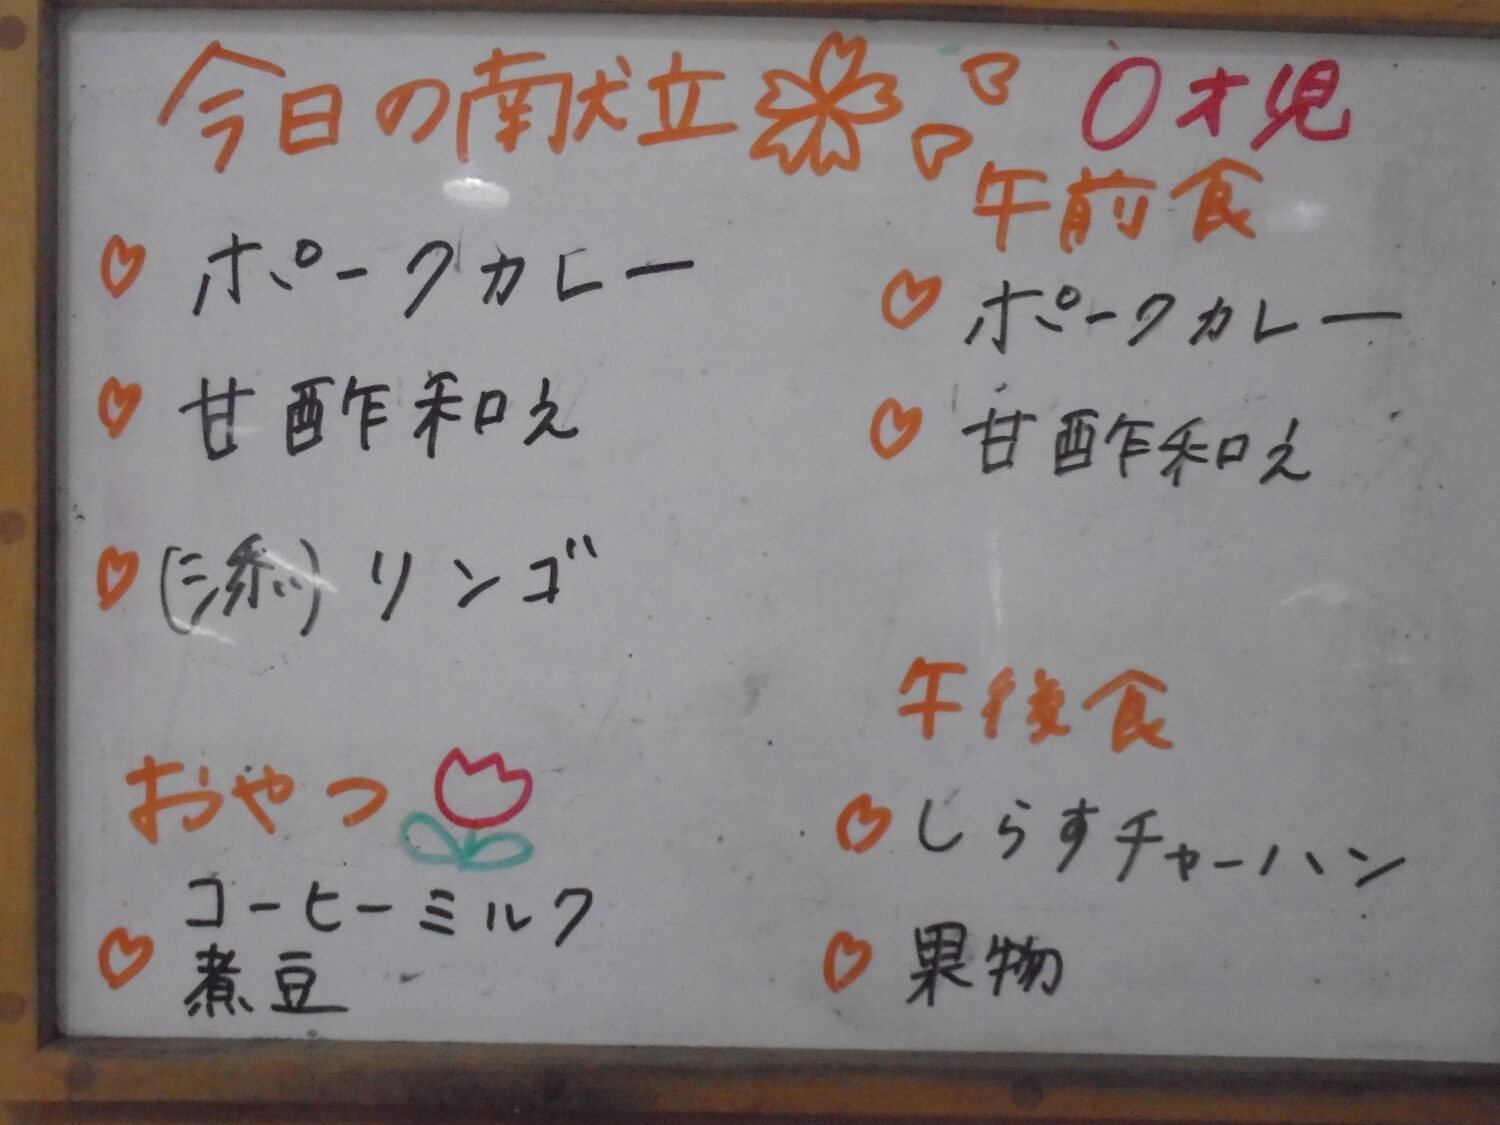 今日の献立
ポークカレー
甘酢和え
(添) リンゴ
おやつ
コーヒーミルク
煮豆
0才児
午前食
ポークカレー
甘酢和え
午後食
しらすチャーハン
果物